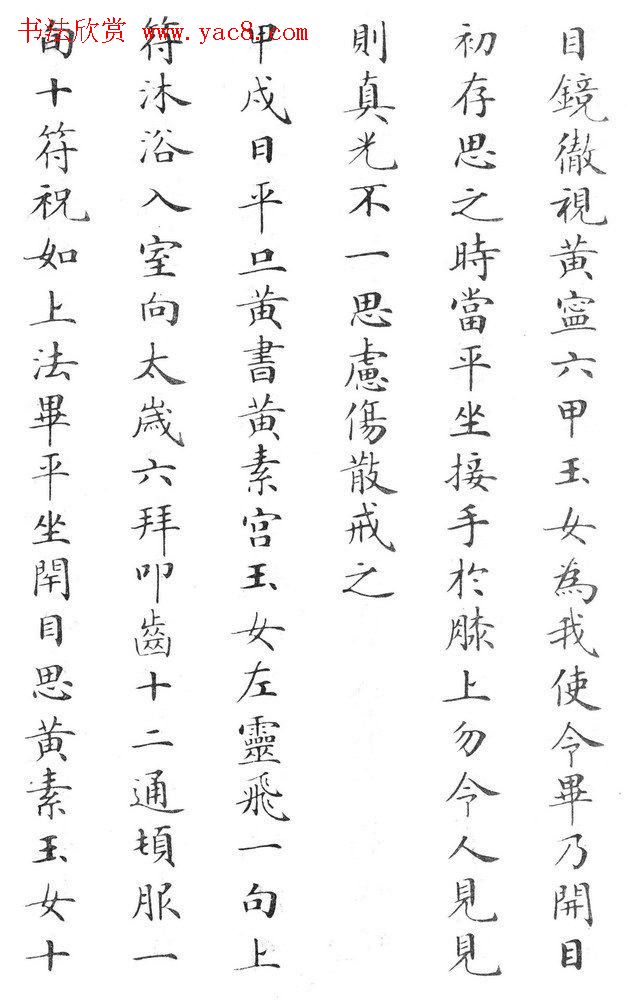 书法欣赏 www.yac8.com
目鏡徹視黃寍六甲玉女為我使令畢乃開目
初存思之時當平坐接手於膝上勿令人見見
則真光不一思慮傷散戒之
甲戌日平旦黃書黃素宮玉女左靈飛一旬上
符沐浴入室向太歲六拜叩齒十二通頓服一
旬十符祝如上法畢平坐閇目思黃素玉女十